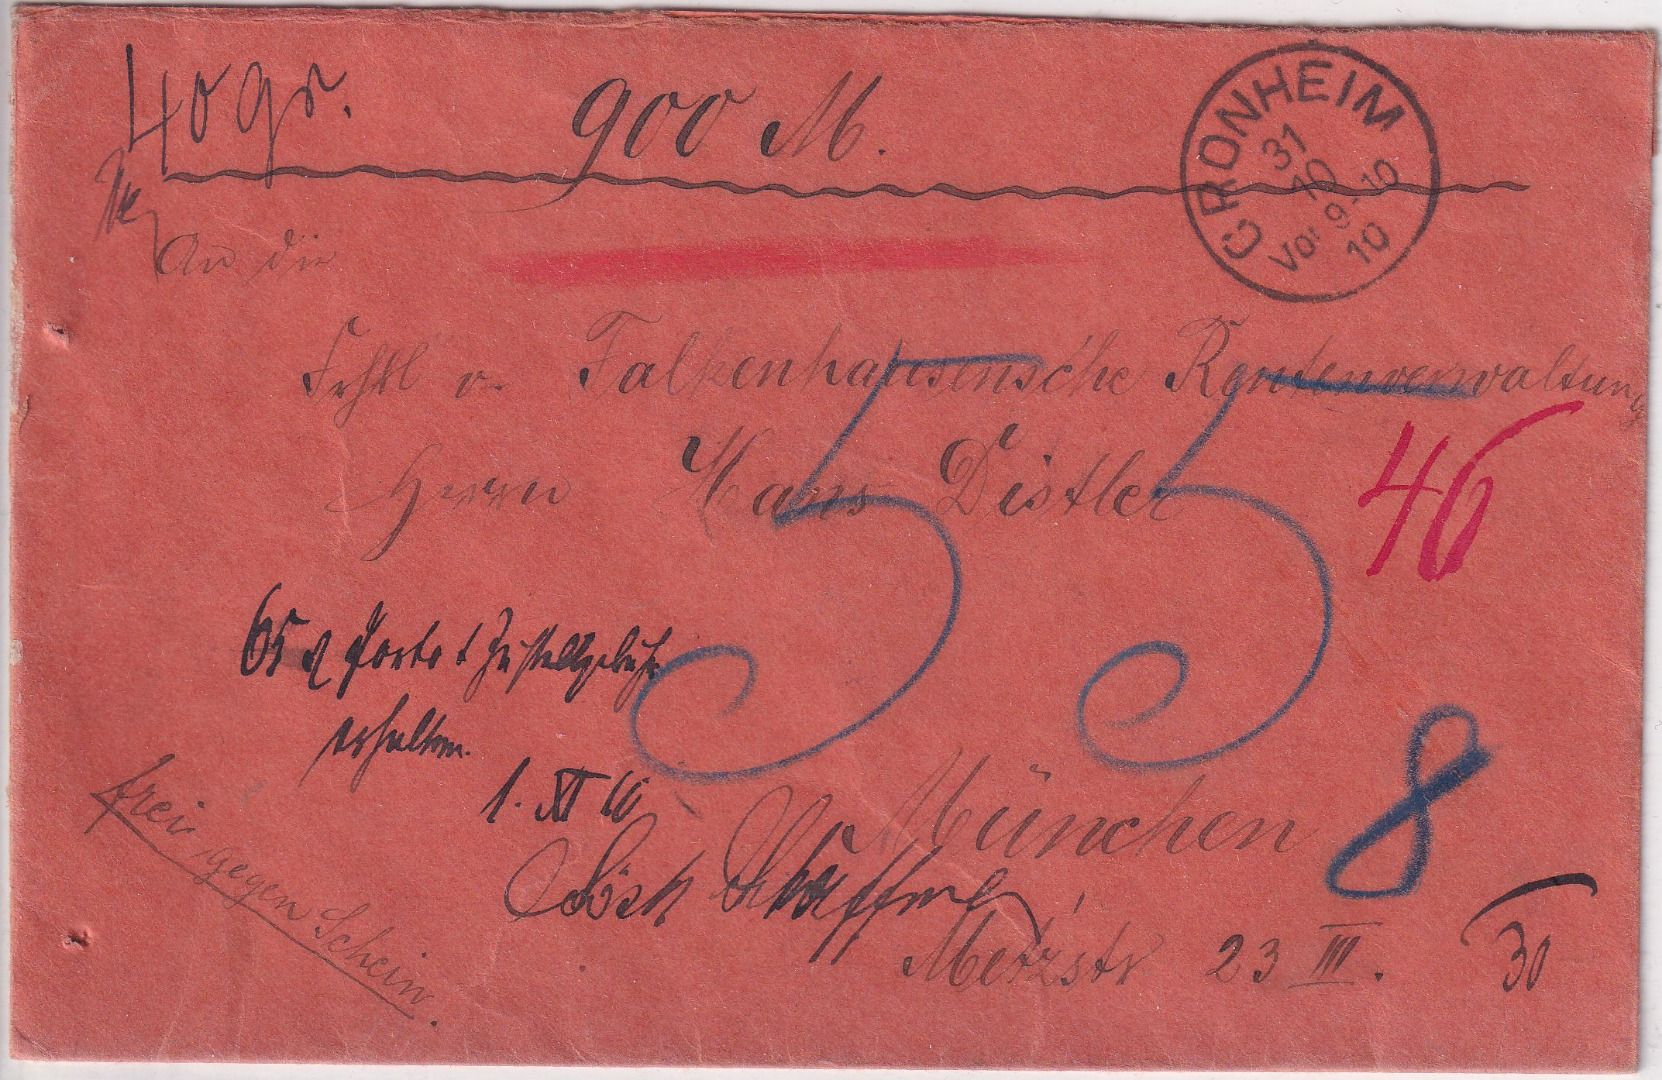 40 gr.
900 M.
CRONHEIM
31
10
Vor 9-10
10
An die
Frhll v. Falkenhausensche Rentenverwaltung
46
Herrn Hans Distler
55
65 ₰ Porto + Zustellgebühr
erhalten.
1. XI 10
München 8
frei gegen Schein.
Metzstr 23 III.
30